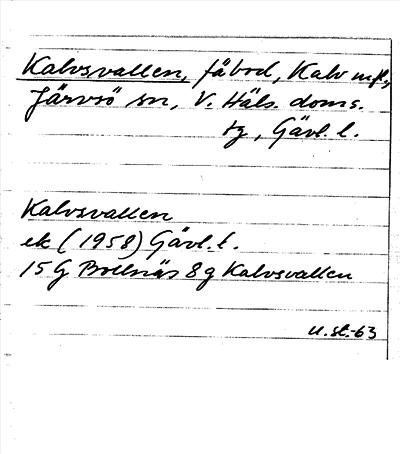 Kalvsvallen, fäbod, Kalv m.fl.,
Järvsö sn, V. Häls. doms.
tg, Gävl. l.
Kalvsvallen
ek (1958) Gävl. l.
15G Bollnäs 8g Kalvsvallen
U. st. -63